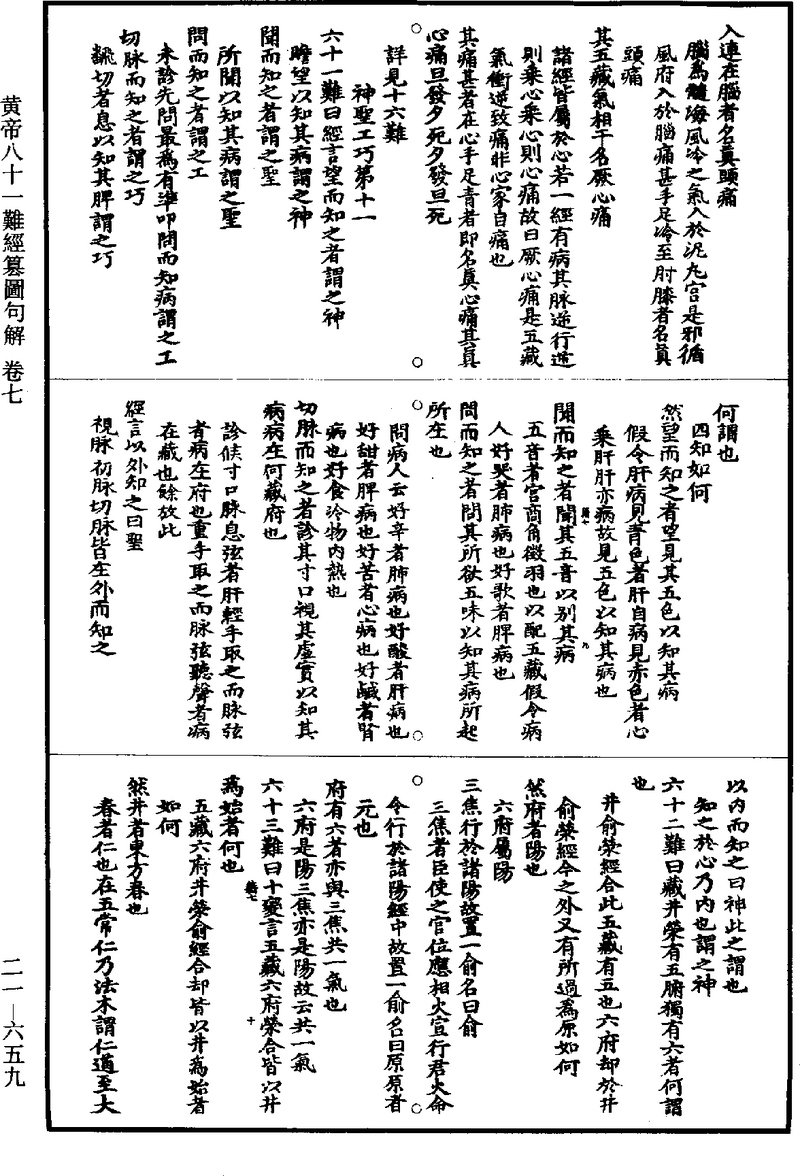 入連在腦者名真頭痛
腦爲髓海風冷之氣入於泥丸宮是邪循
風府入於腦痛甚手足冷至肘膝者名真
頭痛
其五藏氣相干名厥心痛
諸經皆屬於心若一經有病其脉逆行逆
則乘心乘心則心痛故曰厥心痛是五藏
氣衝逆致痛非心家自痛也
其痛甚者在心手足青者即名真心痛其真
心痛旦發夕死夕發旦死
詳見十六難
神聖工巧第十一
六十一難曰經言望而知之者謂之神
瞻望以知其病謂之神
聞而知之者謂之聖
所聞以知其病謂之聖
問而知之者謂之工
未診先問最爲有準叩問而知病謂之工
切脉而知之者謂之巧
切者息以知其脾謂之巧
何謂也
四知如何
然望而知之者望見其五色以知其病
假令肝病見青色者肝自病見赤色者心
乘肝肝亦病故見五色以知其病也
聞而知之者聞其五音以別其病
五音者宮商角徵羽也以配五藏假令病
人好哭者肺病也好歌者脾病也
問而知之者問其所欲五味以知其病所起
所在也
問病人云好辛者肺病也好酸者肝病也
好甜者脾病也好苦者心病也好鹹者腎
病也好食冷物內熱也
切脉而知之者診其寸口視其虛實以知其
病病在何藏府也
診候寸口脉息弦者肝輕手取之而脉弦
者病在府也重手取之而脉弦聽聲者病
在藏也餘放此
經言以外知之曰聖
視脉初脉切脉皆在外而知之
以內而知之曰神此之謂也
知之於心乃內也謂之神
六十二難曰藏井榮有五腑獨有六者何謂
也
井俞滎經合此五藏有五也六府却於井
俞滎經合之外又有所過爲原如何
然府者陽也
六府屬陽
三焦行於諸陽故置一俞名曰俞
三焦者臣使之官位應相火宣行君火命
令行於諸陽經中故置一俞名曰原原者
元也
府有六者亦與三焦共一氣也
六府是陽三焦亦是陽故云共一氣
六十三難曰十變言五藏六府滎合皆以井
爲始者何也
五藏六府井滎俞經合却皆以井爲始者
如何
然井者東方春也
春者仁也在五常仁乃法木謂仁道至大
黄帝八十一難經纂圖句解 卷七
二一—六五九